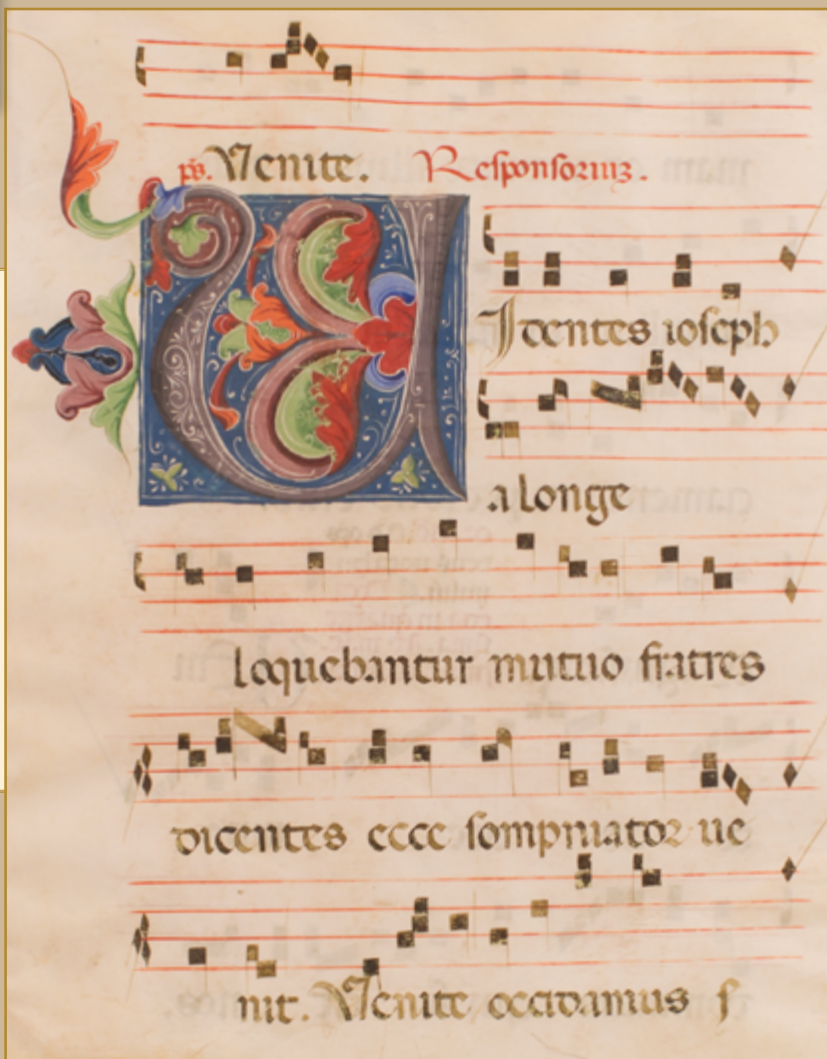 ps. Venite. Responsorium.
VIdentes ioseph
a longe
loquebantur mutuo fratres
dicentes ecce sompniator ue
nit. Venite occidamus s